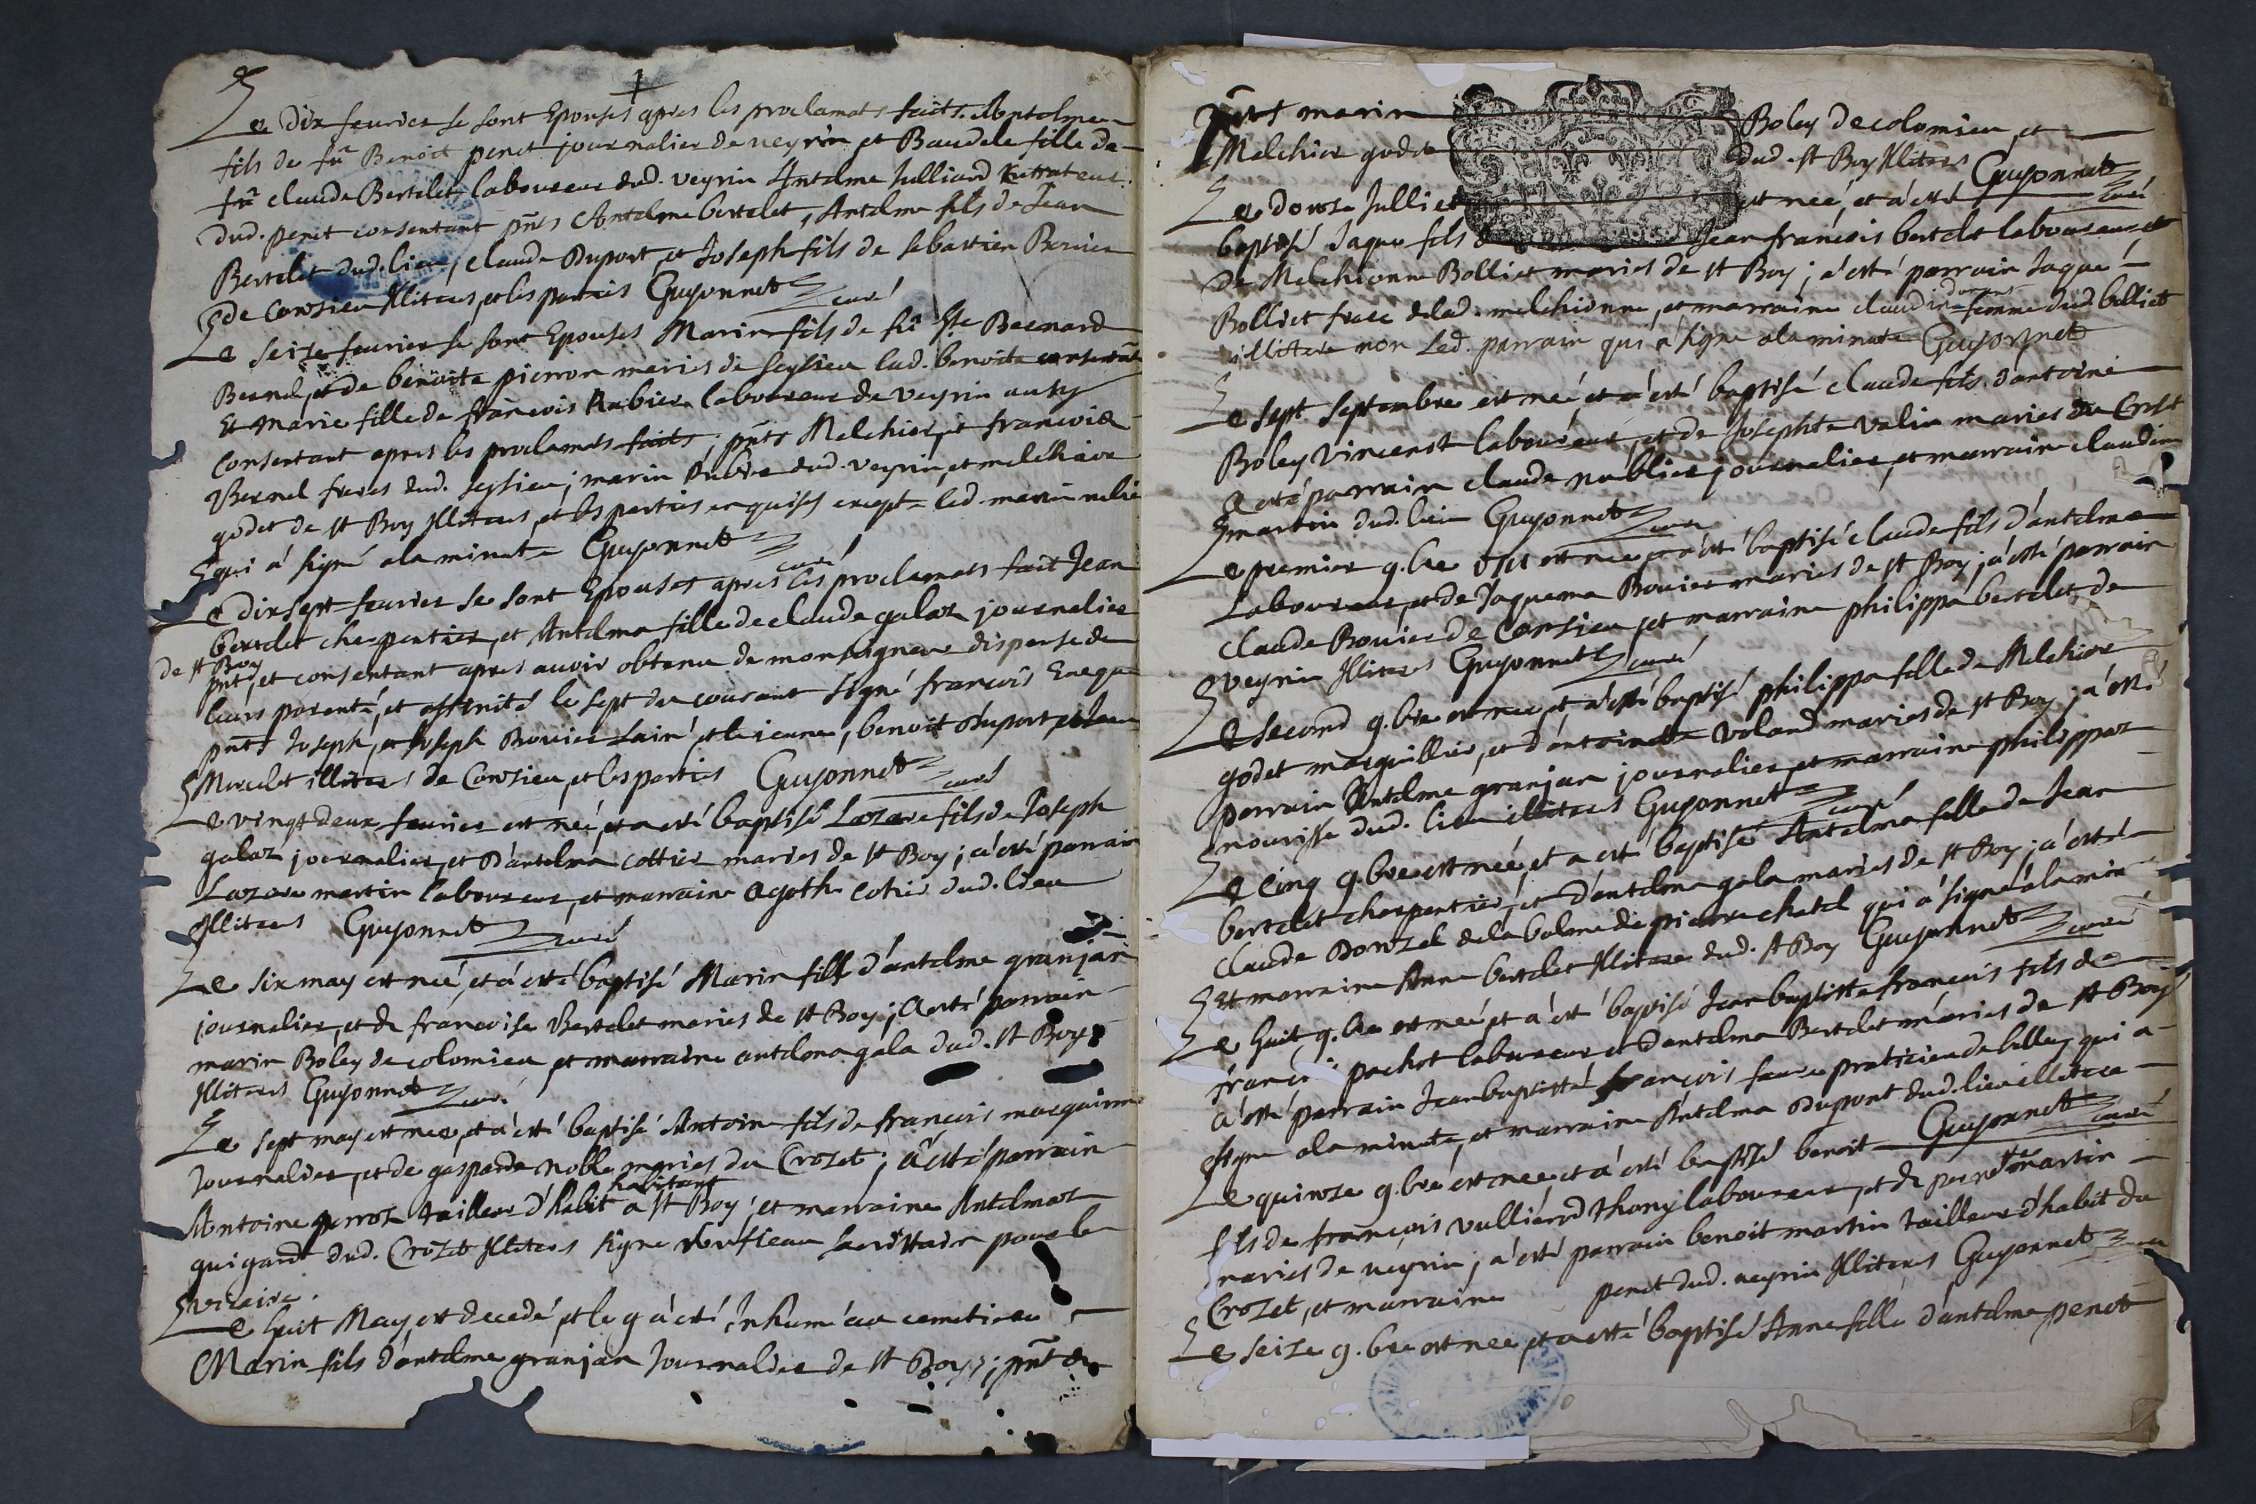 Le dix feurier se sont Epousés apres les proclamats faits Antelme
fils de fû Benoit penet journalier de veyrin et Baudele fille de
fû claude Bertelet laboureur dud. veyrin Antelme Julliard
dud. penet consentant pnts Antelme bertelet, Antelme fils de Jean
Bertelet dud. lieu, claude Duport, et Joseph fils de sebastien Bovier
de Consieu Illiteres, et les parties Guyonnet curé
Le seize feurier se sont Epousés Marin fils de Bernard
Bernel, et de benoite pierron mariés de seyssieu lad. benoite
Et Marie fille de francois laboureur de veyrin aussy
consentant apres les proclamats faits pnts Melchior, et francois
Bernel freres dud. seyssieu, marin dud. veyrin, et melchior
godet de st Boy Illiteres, et les parties enquises excepté led. marin
qui à signé a la minute Guyonnet curé
Le dixsept feurier se sont Epousés apres les proclamats fait Jean
bertelet charpentier, et Antelma fille de claude galaz journalier
de st Boy
pnt, et consentant apres auoir obtenu de monseigneur dispense de
leurs parenté, et affinité le sept du courant signé francois Eveque
pnts Joseph, et Joseph Bouier Lainé, et le ieune, benoit duport
illiteres de Consieu, et les parties Guyonnet curé
Le vingt deux feurier est né, et a esté baptisé Lazare fils de Joseph
galaz journalier, et D'antelma cottier mariés de st Boy; a esté parrain
Lazare martin laboureur, et marraine agathe cotier dud. lieu
Illiteres Guyonnet curé
Le six may est né, et à esté baptisé Marin fils d'antelme granjan
journalier, et de francoise Bertelet mariés de st Boy; A esté parrain
marin Boley de colomieu et marraine antelma gala dud. st Boy
Illiteres Guyonnet curé
Le sept may est né, et à esté baptisé Antoine fils de francois
Journalier, et de gasparde noble mariés du Crozet; à esté parrain
habitant
Antoine perroz tailleur d'habit a st Boy; et marraine Antelmaz
guigard dud. Crozet Illiteres signé pour le
vicaire.
Le huit May, est decedé, et le 9 à esté inhumé au cemetiere
Marin fils d'antelme granjan Journalier de st Boy; pnt
pnts marin Boley de colomieu, et
Melchior godet dud. st Boy Illiteres Guyonnet curé
Le douze Julliet est né, et à esté
baptisé Jaque fils Jean francois bertelet laboureur, et
de Melchionne Bolliet mariés de st Boy; à esté parrain Jaque
Bolliet frere de lad. melchionne, et marraine femme dud. bolliet
illitere non Led. parrain qui à signé a la minute Guyonnet
Le sept septembre est né, et à esté baptisé claude fils d'antoine
Boley vincent laboureur, et de Josephte valin mariés du Croset
a esté parrain claude journalier, et marraine claudine
martin dud. lieu Guyonnet curé
Le premier 9.bre est né, et à esté baptisé claude fils d'antelme
Laboureur, et de Jaquema Bovier mariés de st Boy; à esté parrain
claude Bouier de Consieu, et marraine philippa bertelet de
veyrin Illiteres Guyonnet curé
Le second 9.bre est née, et à esté baptisé philippa fille de Melchior
godet marguillier, et d'antoinette Voland mariés de st Boy; à esté
parrain Antelme granjan journalier, et marraine philippaz
nourisse dud. lieu illiteres Guyonnet curé
Le Cinq 9.bre est née, et a esté baptisé Antelma fille de Jean
bertelet charpentier, et d'antelma gala mariés de st Boy; a esté
claude Donzel de la balme de pierre chatel qui à signé à la min
Et marraine Anne bertelet Illitere dud. st Boy Guyonnet curé
Le huit 9.bre est né, et à esté baptisé Jean baptiste francois fils de
francois pochet laboureur, et D'antelma Bertelet mariés de st Boy
à esté parrain Jean baptiste francois praticien de belley qui a
signe a la minute, et marraine Antelma Dupont dud. lieu illitere
Guyonnet curé
Le quinze 9.bre est né, et à esté baptisé benoit
fils de francois vulliérod thony laboureur, et de pernette martin
mariés de veyrin; à esté parrain benoit martin tailleur d'habit du
Crozet, et marraine penet dud. veyrin Illiteres Guyonnet curé
Le seize 9.bre est née, et a esté baptisé Anne fille d'antelme penet